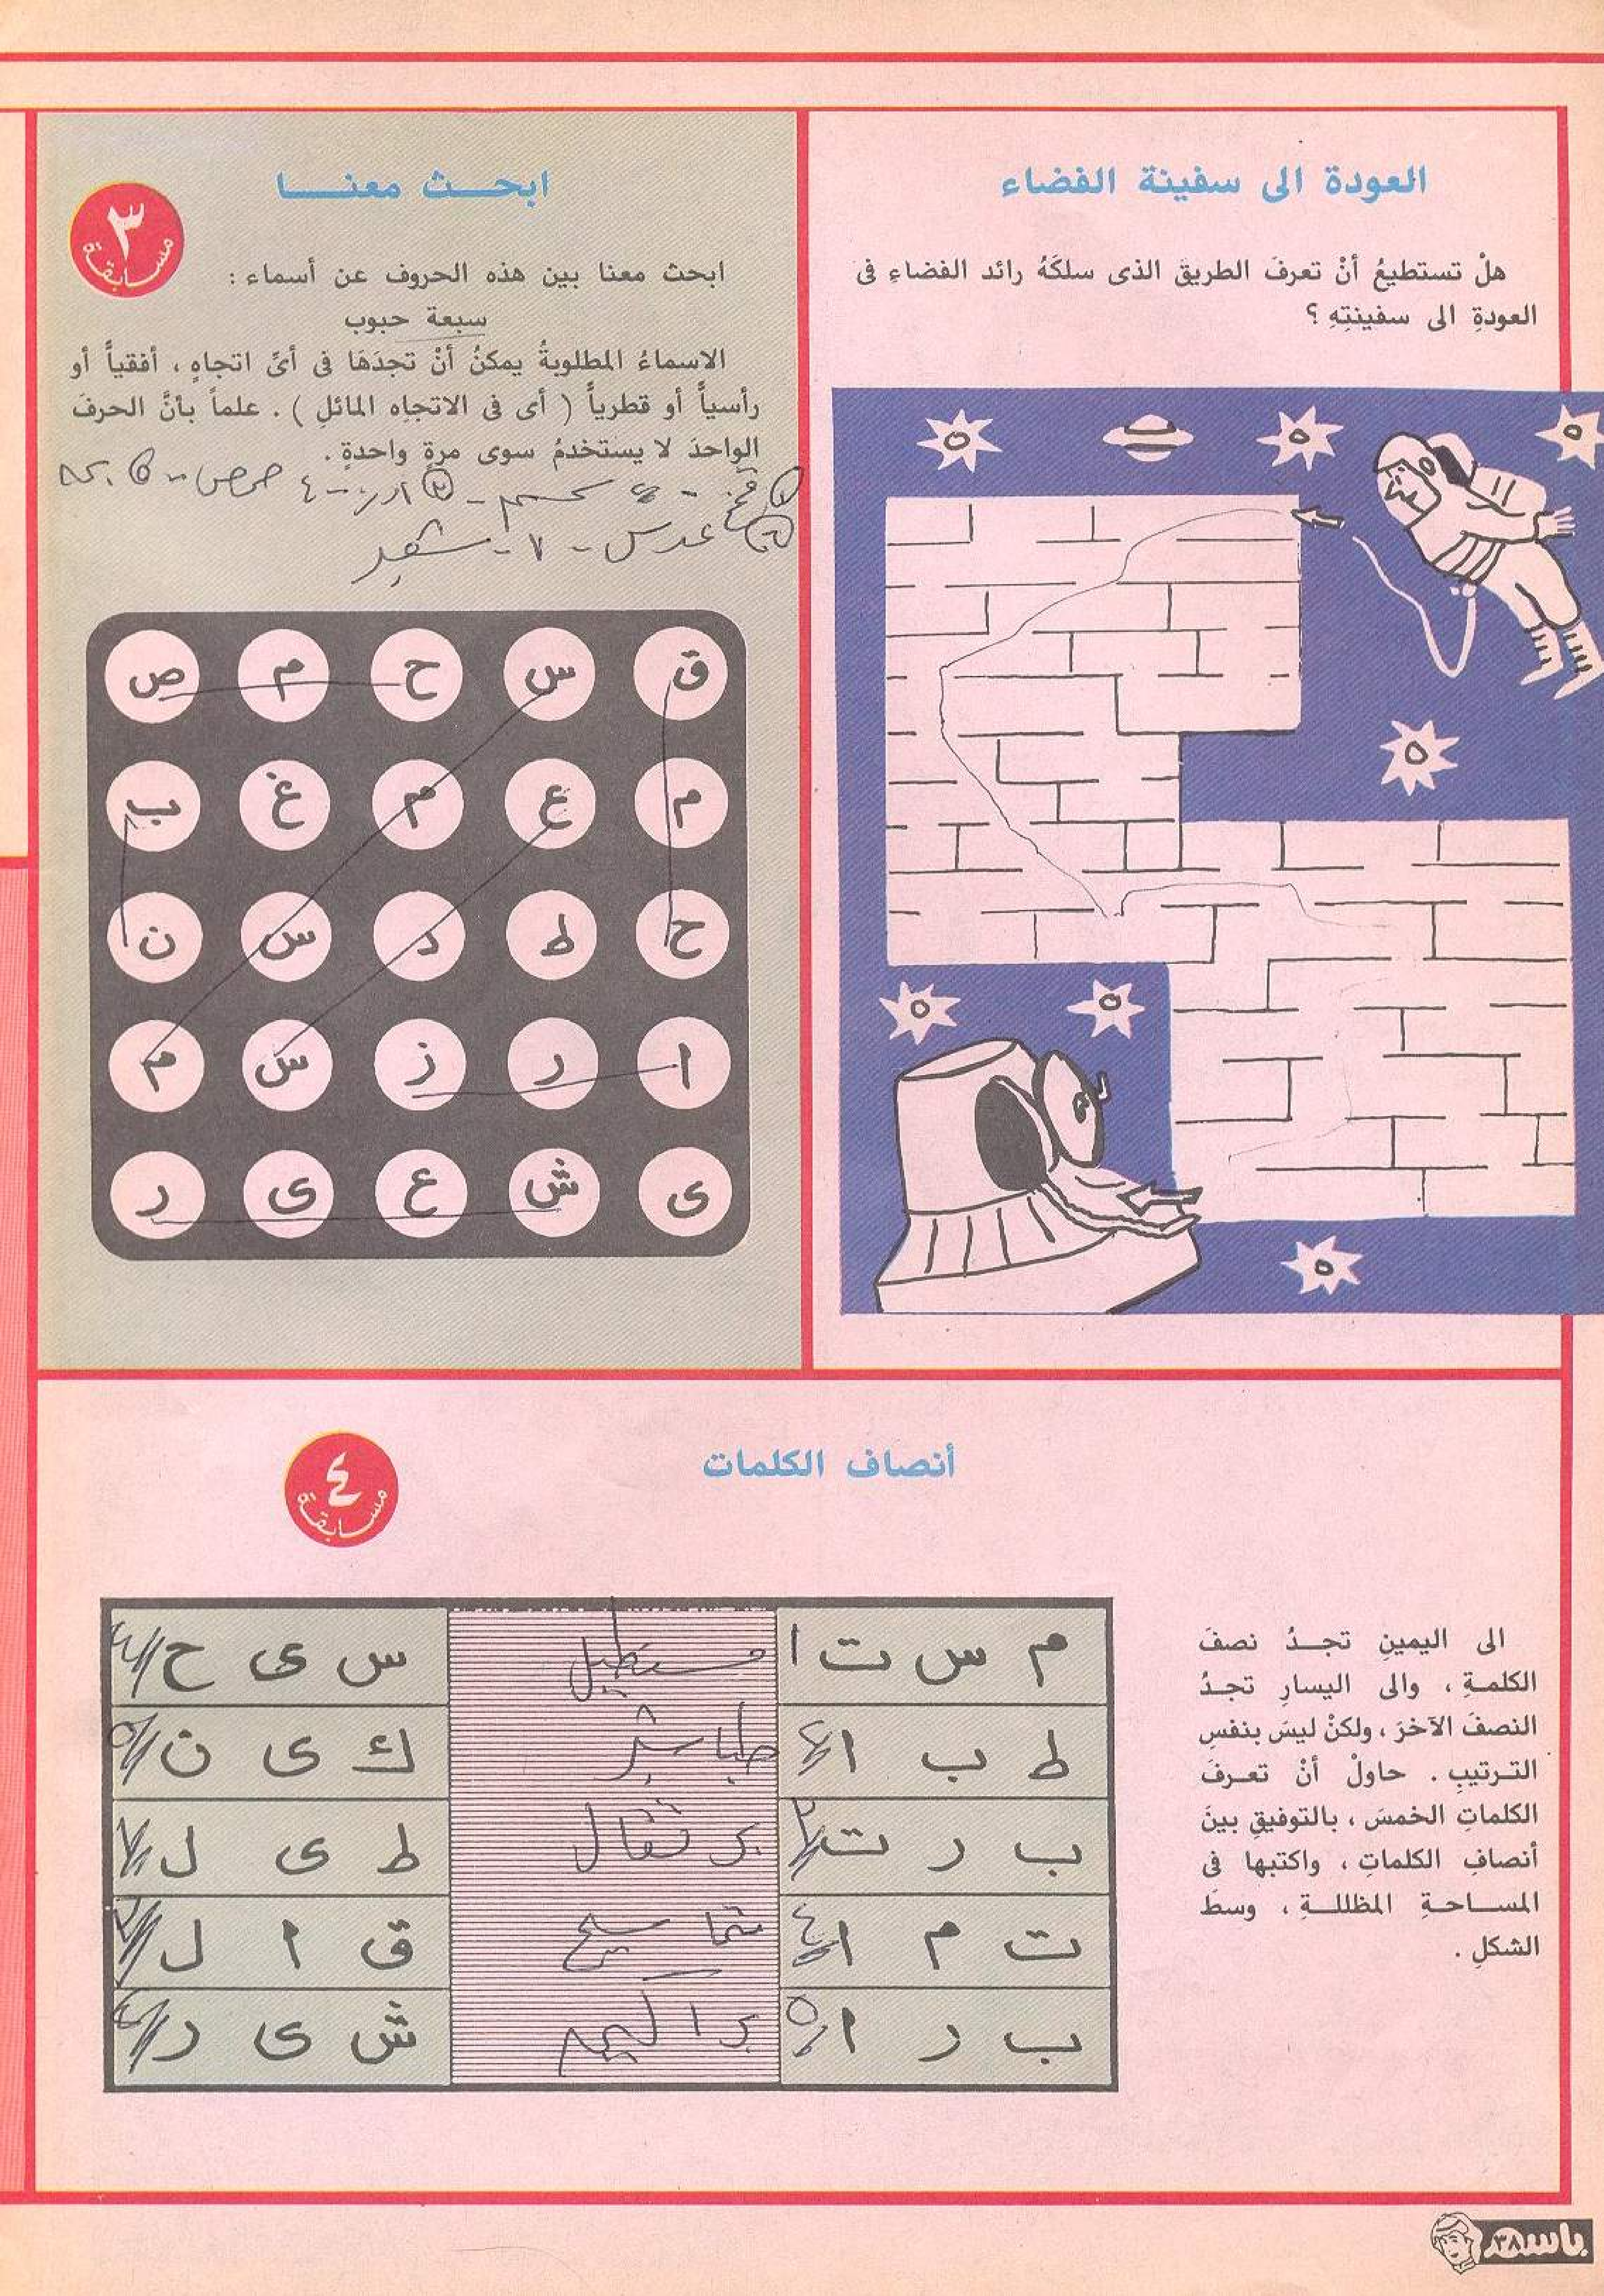 العودة الى سفينة الفضاء
هلْ تستطيعُ أنْ تعرفَ الطريقَ الذى سلكَهُ رائد الفضاءِ فى
العودةِ الى سفينتِهِ ؟
ابحـــث معنـــــا
٣
مسابقة
ابحث معنا بين هذه الحروف عن أسماء :
سبعة حبوب
الاسماءُ المطلوبةُ يمكنُ أنْ تجدَهَا فى أىِّ اتجاهٍ ، أفقياً أو
رأسياً أو قطرياً ( أى فى الاتجاهِ المائلِ ) . علماً بأنَّ الحرفَ
الواحدَ لا يستخدمُ سوى مرةٍ واحدةٍ .
حمص
عدس - ٧ - شعير
ق س ح م ص
م ع م غ ب
ح ط د س ن
ا ر ز س م
ى ش ع ى ر
أنصاف الكلمات
٤
مسابقة
الى اليمينِ تجــدُ نصفَ
الكلمــةِ ، والى اليسارِ تجـدُ
النصفَ الآخرَ ، ولكنْ ليسَ بنفسِ
التـرتيبِ . حاولْ أنْ تعـرفَ
الكلماتِ الخمسَ ، بالتوفيقِ بينَ
أنصافِ الكلماتِ ، واكتبها فى
المســاحــةِ المظللــةِ ، وسطَ
الشكلِ .
م س ت ١ مستطيل س ى ح
ط ب ا طباشير ك ى ن
ب ر ت برتقال ط ى ل
ت م ا ٤ تماسيح ق ا ل
ب ر ا ٥ ش ى ر
باسم
٣٨